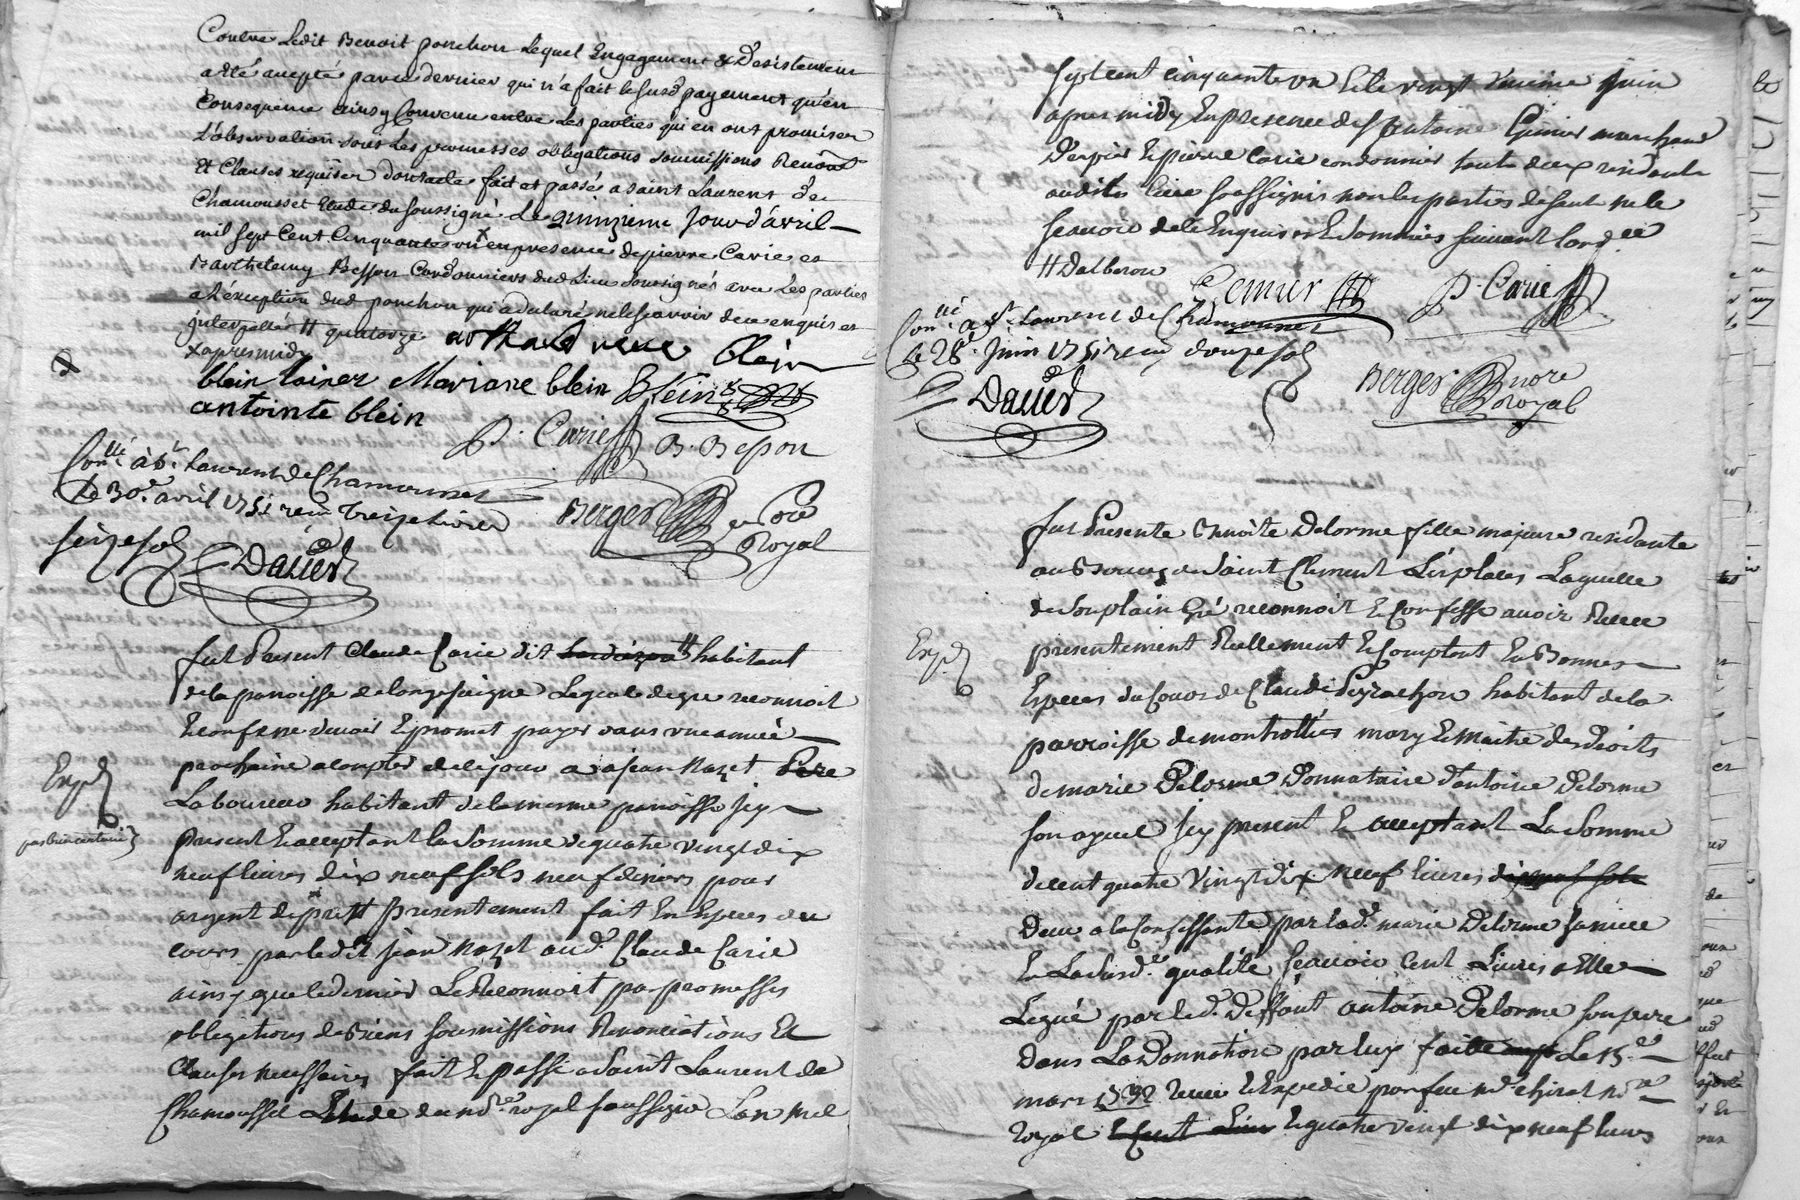 Contre Ledit Benoit ponchon Lequel Engagement & Desistement
a été accepté par ce dernier qui n'a fait le susd payement qu'en
Consequence ainsy Convenu entre Les parties qui en ont promis
L'observation sous Les promesses obligations soumissions Renonc
Et Clauses requises dont acte fait et passé a saint Laurent de
Chamousset Etude du soussigné Le quinzieme Jour d'avril
mil sept Cent Cinquante un x en presence de pierre Carie et
Barthelemy Besson Cordonniers dud Lieu soussignés avec Les parties
a L'exception dud ponchon qui a declaré ne le scavoir de ce enquis et
interpellé H quatorze
x apres midy
veuve blein
blein lainez Mariane blein Blein
antointe blein
P. Carie B. Besson
Con.llé à St. Laurent de Chamousset
Le 30e. avril 1751 recu treize livres
seize sols
Dauer
Berger no.re
Royal
fut Present Claude Carie dit habitant
de la paroisse de longesaigne Lequel de gre reconnoit
Et confesse devoir Et promet payer dans une année
prochaine a compter de ce jour a jean Nazet Pere
Laboureur habitant de la mesme paroisse jcy
Present Et acceptant la somme de quatre vingt dix
neuf livres dix neuf sols neuf deniers pour
argent de prest presentement fait En Especes du
cours par led. jean Nazet aud. Claude Carie
ainsy que le dernier Le Reconnoit par promesses
obligations de Biens soumissions Renonciations Et
Clauses necessaires fait Et passé a Saint Laurent de
Chamousset Etude du no.re royal soussigné L'an mil
Exp.d
sept cent cinquante un Et le vingt Juin
apres midy En presence de S.r antoine Gemier marchand
Drapier Et pierre Carie cordonnier touts deux residants
audit lieu soussignés non les parties desant ne le
scavoir de ce Enquises Et Sommées suivant lord.ce
H Dalberon
Gemier P. Carie
Con.llé a St. Laurent de Chamousset
Le 28e. Juin 1751 recu douze sols
Dauer
Berger nore
Royal
fut Presente Benoite Delorme fille majeure residante
au Bourg de Saint Clement Les places Laquelle
de son plain Gré reconnoit Et confesse avoir Receu
Exp.d
presentement Reellement Et Comptant En Bonnes
Especes du Cours de Claude Peyrachon habitant de la
parroisse de montrottier mary Et maitre des Droits
de marie Delorme Donnataire d'antoine Delorme
son ayeul jcy present Et acceptant La somme
de cent quatre Vingt Dix neuf livres dix neuf sols
Deue a la Confessante par lad. marie Delorme
En La Susd.e qualité Scavoir Cent Livres a Elle
Legué par led. Deffunt antoine Delorme son pere
Dans La Donnation par luy faite Le 15e.
mars 1732 recue Et Expedié par feu m.e chirat no.re
Royal Et quatre vingt dix neuf livres